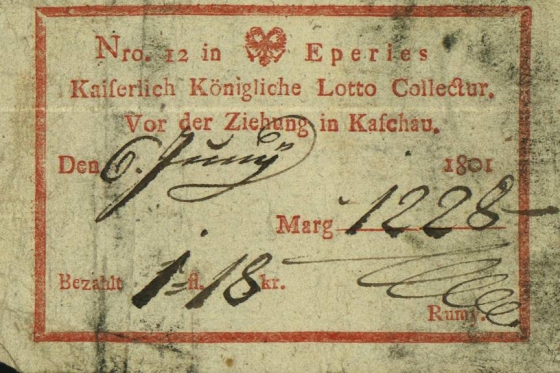 Nro. 12 in Eperies
Kaiſerlich Königliche Lotto Collectur.
Vor der Ziehung in Kaſchau.
Den 6. Juny 1801
Marg 1228
Bezahlt 1 fl. 18 kr.